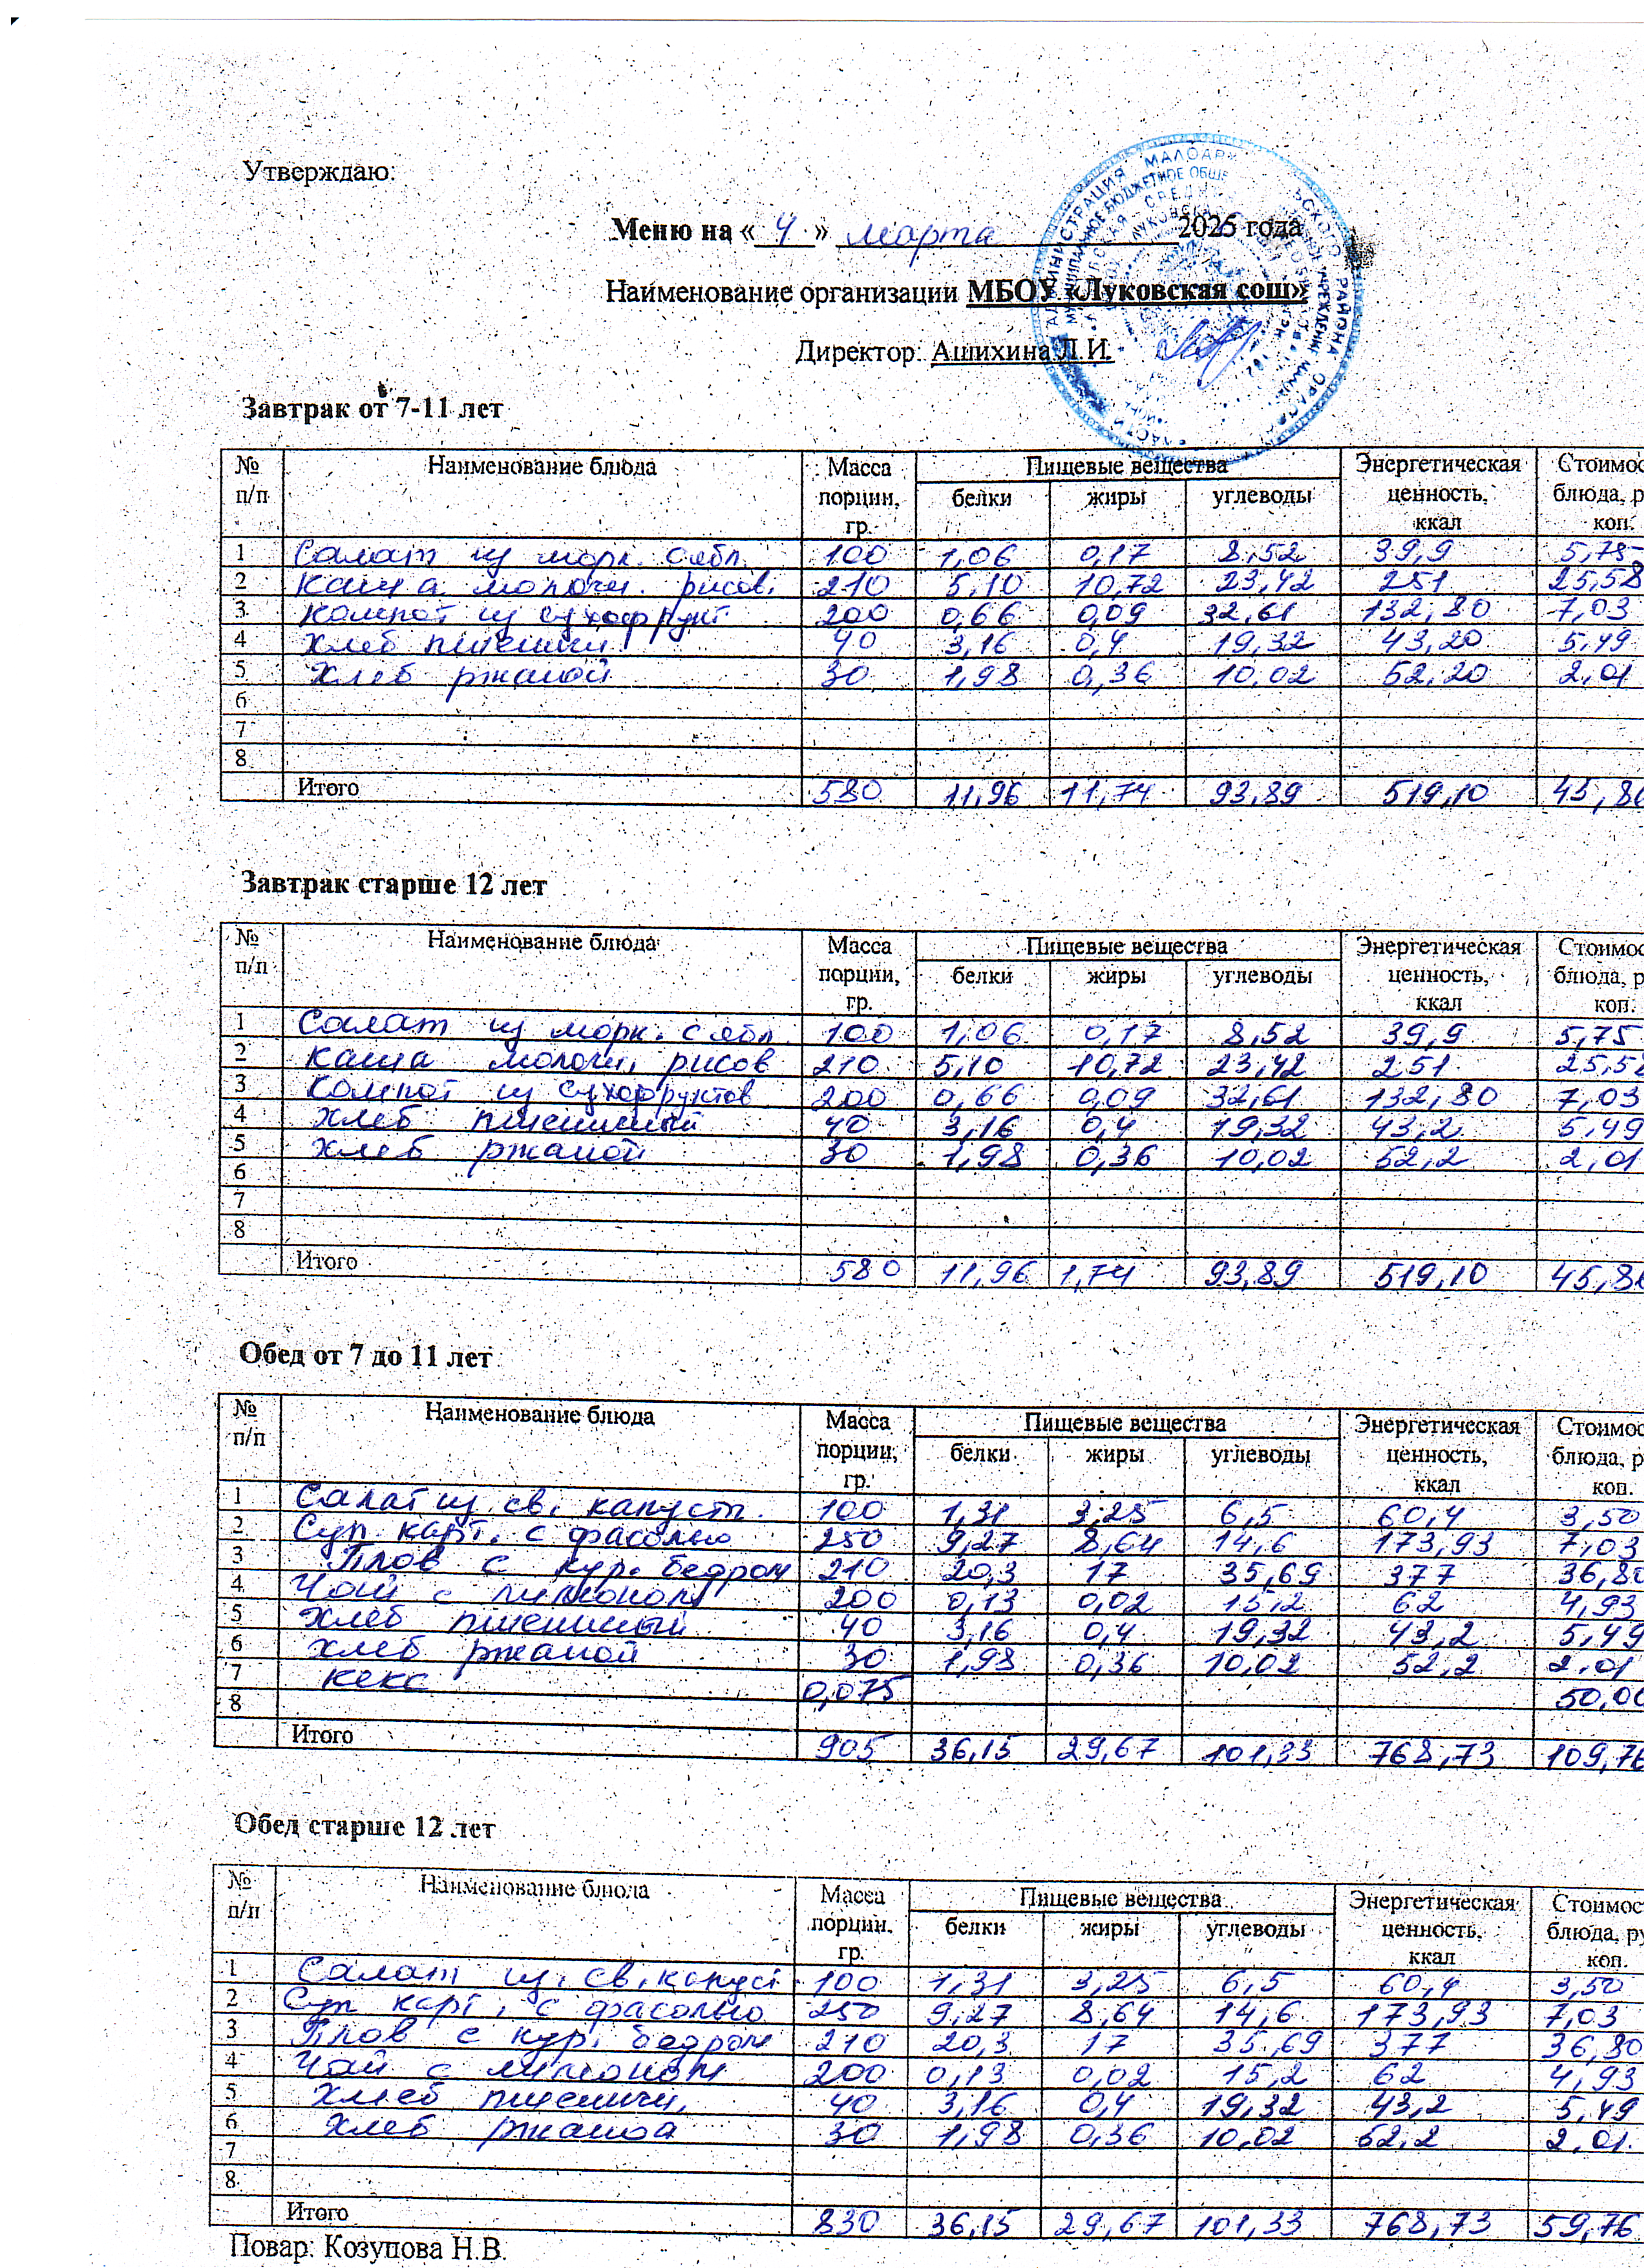 Утверждаю:
Меню на « 4 » марта 2025 года
Наименование организации МБОУ «Луковская сош»
Директор: Ашихина Л.И.
Завтрак от 7-11 лет
№ п/п Наименование блюда Масса порции, гр. Пищевые вещества белки жиры углеводы Энергетическая ценность, ккал Стоимос блюда, р коп.
1 Салат из морк. с ябл. 100 1,06 0,17 8,52 39,9 5,75
2 Каша молочн. рисов. 210 5,10 10,72 23,42 251 25,58
3 Компот из сухофрукт 200 0,66 0,09 32,61 132,80 7,03
4 Хлеб пшеничн 40 3,16 0,4 19,32 43,20 5,49
5 Хлеб ржаной 30 1,98 0,36 10,02 52,20 2,01
6
7
8
Итого 580 11,96 11,74 93,89 519,10 45,8
Завтрак старше 12 лет
№ п/п Наименование блюда Масса порции, гр. Пищевые вещества белки жиры углеводы Энергетическая ценность, ккал Стоимос блюда, р коп.
1 Салат из морк. с ябл. 100 1,06 0,17 8,52 39,9 5,75
2 Каша молочн. рисов 210 5,10 10,72 23,42 251 25,58
3 Компот из сухофруктов 200 0,66 0,09 32,61 132,80 7,03
4 Хлеб пшеничный 40 3,16 0,4 19,32 43,2 5,49
5 Хлеб ржаной 30 1,98 0,36 10,02 52,2 2,01
6
7
8
Итого 580 11,96 1,74 93,89 519,10 45,8
Обед от 7 до 11 лет
№ п/п Наименование блюда Масса порции, гр. Пищевые вещества белки жиры углеводы Энергетическая ценность, ккал Стоимос блюда, р коп.
1 Салат из св. капусты. 100 1,31 3,25 6,5 60,4 3,50
2 Суп карт. с фасолью 250 9,27 8,64 14,6 173,93 7,03
3 Плов с кур. бедром 210 20,3 17 35,69 377 36,80
4 Чай с лимоном 200 0,13 0,02 15,2 62 4,93
5 Хлеб пшеничный 40 3,16 0,4 19,32 43,2 5,49
6 Хлеб ржаной 30 1,98 0,36 10,02 52,2 2,01
7 кекс 0,075 50,00
8
Итого 905 36,15 29,67 101,33 768,73 109,76
Обед старше 12 лет
№ п/п Наименование блюда Масса порции, гр. Пищевые вещества белки жиры углеводы Энергетическая ценность, ккал Стоимос блюда, ру коп.
1 Салат из св. капуст 100 1,31 3,25 6,5 60,4 3,50
2 Суп карт. с фасолью 250 9,27 8,64 14,6 173,93 7,03
3 Плов с кур. бедром 210 20,3 17 35,69 377 36,80
4 Чай с лимоном 200 0,13 0,02 15,2 62 4,93
5 Хлеб пшеничн. 40 3,16 0,4 19,32 43,2 5,49
6 Хлеб ржаноа 30 1,98 0,36 10,02 62,2 2,01
7
8
Итого 830 36,15 29,67 101,33 768,73 59,76
Повар: Козупова Н.В.